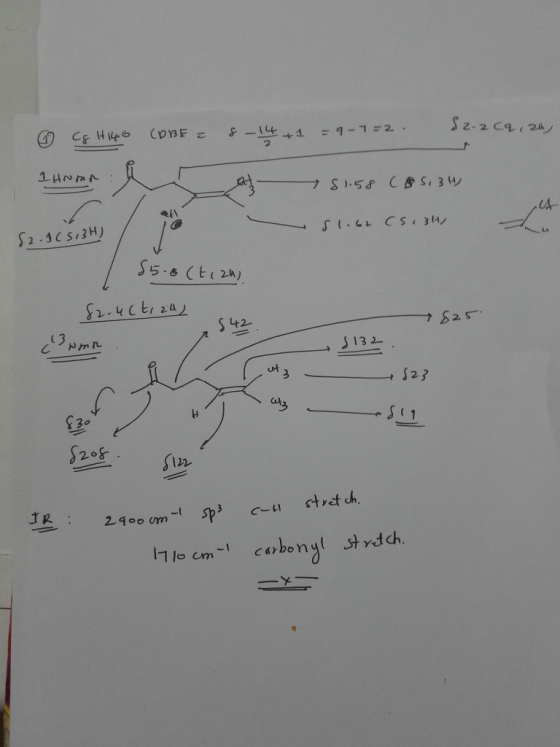 ① C8H14O CDBE = 8 - 14/2 + 1 = 9 - 7 = 2. δ2.2 (q, 2H)
1HNMR :
O CH3 → δ1.58 (s, 3H)
H
δ1.62 (s, 3H)
CH3
H
δ2.1 (s, 3H)
δ5.0 (t, 2H)
δ2.4 (t, 2H)
C13 NMR
δ42
δ25
δ132
O CH3 → δ23
H CH3 → δ19
δ30
δ208
δ122
IR : 2900 cm-1 sp3 C-H stretch.
1710 cm-1 carbonyl stretch.
—x—